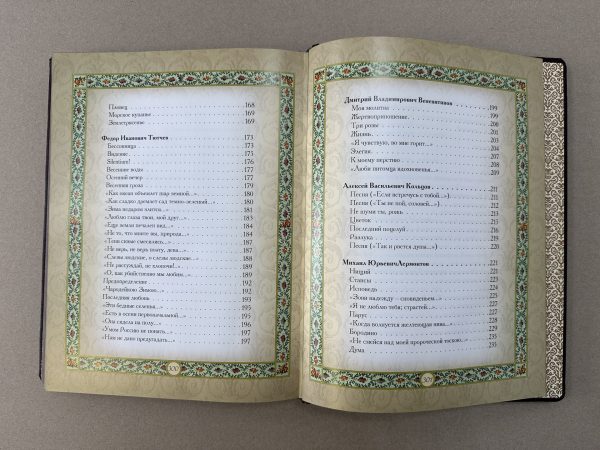 Пловец 168
Морское купанье 169
Землетрясенье 169
Федор Иванович Тютчев 173
Бессонница 173
Видение 175
Silentium! 176
Весенние воды 177
Осенний вечер 177
Весенняя гроза 179
«Как океан объемлет шар земной...» 180
«Как сладко дремлет сад темно-зеленый...» 180
«Зима недаром злится...» 181
«Люблю глаза твои, мой друг...» 183
«Еще земли печален вид...» 184
«Не то, что мните вы, природа...» 184
«Тени сизые смесились...» 187
«Не верь, не верь поэту, дева...» 187
«Слезы людские, о слезы людские...» 188
«Не рассуждай, не хлопочи!..» 188
«О, как убийственно мы любим...» 189
Предопределение 192
«Чародейкою Зимою...» 192
Последняя любовь 193
«Эти бедные селенья...» 195
«Есть в осени первоначальной...» 195
«Она сидела на полу...» 196
«Умом Россию не понять...» 197
«Нам не дано предугадать...» 197
300
Дмитрий Владимирович Веневитинов 199
Моя молитва 199
Жертвоприношение 200
Три розы 201
Жизнь 203
«Я чувствую, во мне горит...» 204
Элегия 207
К моему перстню 208
«Люби питомца вдохновенья...» 209
Алексей Васильевич Кольцов 211
Песня («Если встречусь с тобой...») 211
Песня («Ты не пой, соловей...») 212
Не шуми ты, рожь 213
Цветок 215
Последний поцелуй 216
Разлука 219
Песня («Так и рвется душа...») 220
Михаил Юрьевич Лермонтов 221
Нищий 221
Стансы
Исповедь
«Зови надежду — сновиденьем...»
«Я не люблю тебя; страстей...
Парус
«Когда волнуется желтеющая нива...» 229
Бородино
«Не смейся над моей пророческой тоскою...» 235
Дума
301